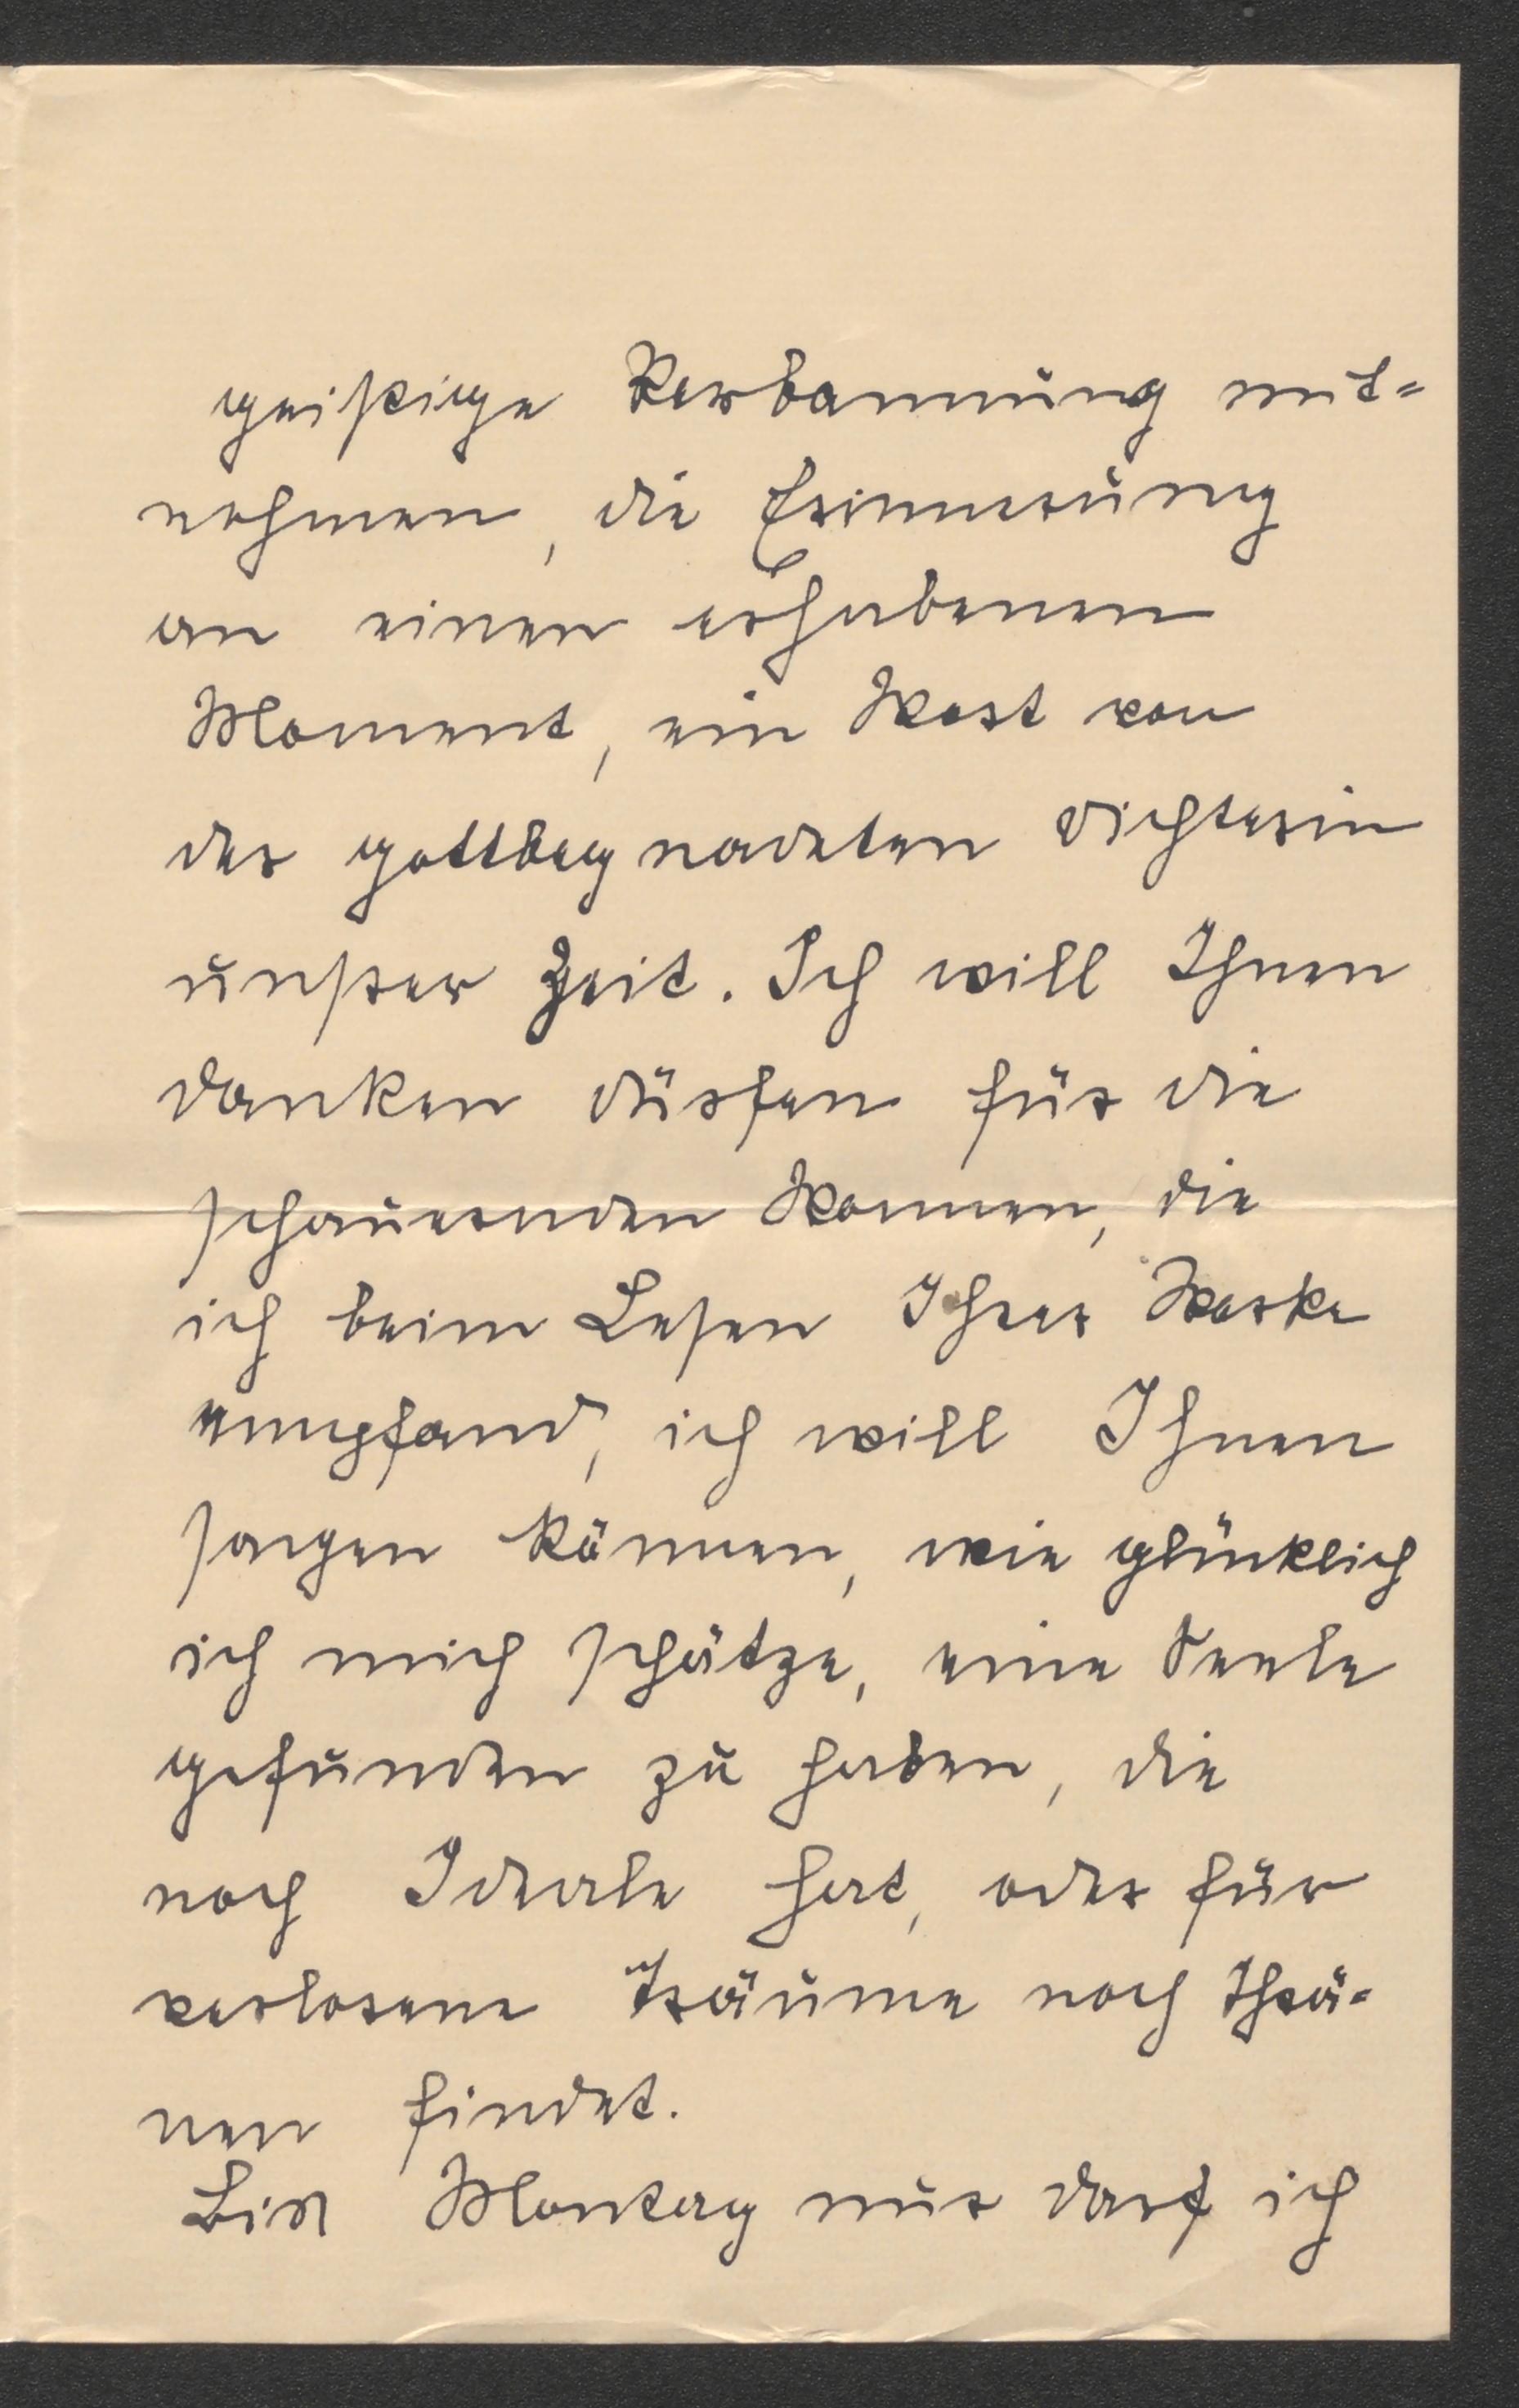 geistige Verbannung mit-
nehmen, die Erinnerung
an einen erhabenen
Moment, ein Wort von
der gottbegnadeten Dichterin
unsrer Zeit. Ich will Ihnen
danken dürfen für die
schauernden Wonnen, die
ich beim Lesen Ihrer Werke
empfand, ich will Ihnen
sagen können, wie glücklich
ich mich schätze, eine Seele
gefunden zu haben, die
noch Ideale hat, oder für
verlorene Träume noch Thrä-
nen findet.
Bis Montag nur darf ich